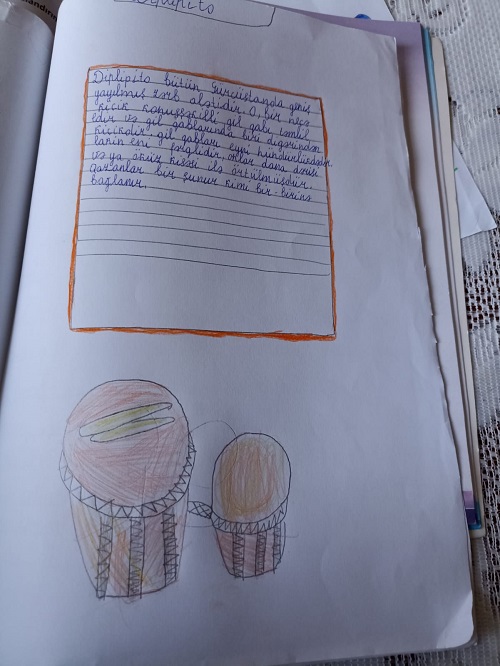 Diplipito
Diplipito bütün Gürcüstanda geniş
yayılmış zərb alətidir. O, bir neçə
kiçik konusşəkilli gil qabı təmsil
edir və gil qablarından biri digərindən
kiçikdir gil qabları eyni hündürlükdədir
lakin eni fərqlidir, onlar dana dərisi
və ya öküz kissi ilə örtülmüşdür.
qazanlar bir şunur kimi bir-birinə
bağlanır.